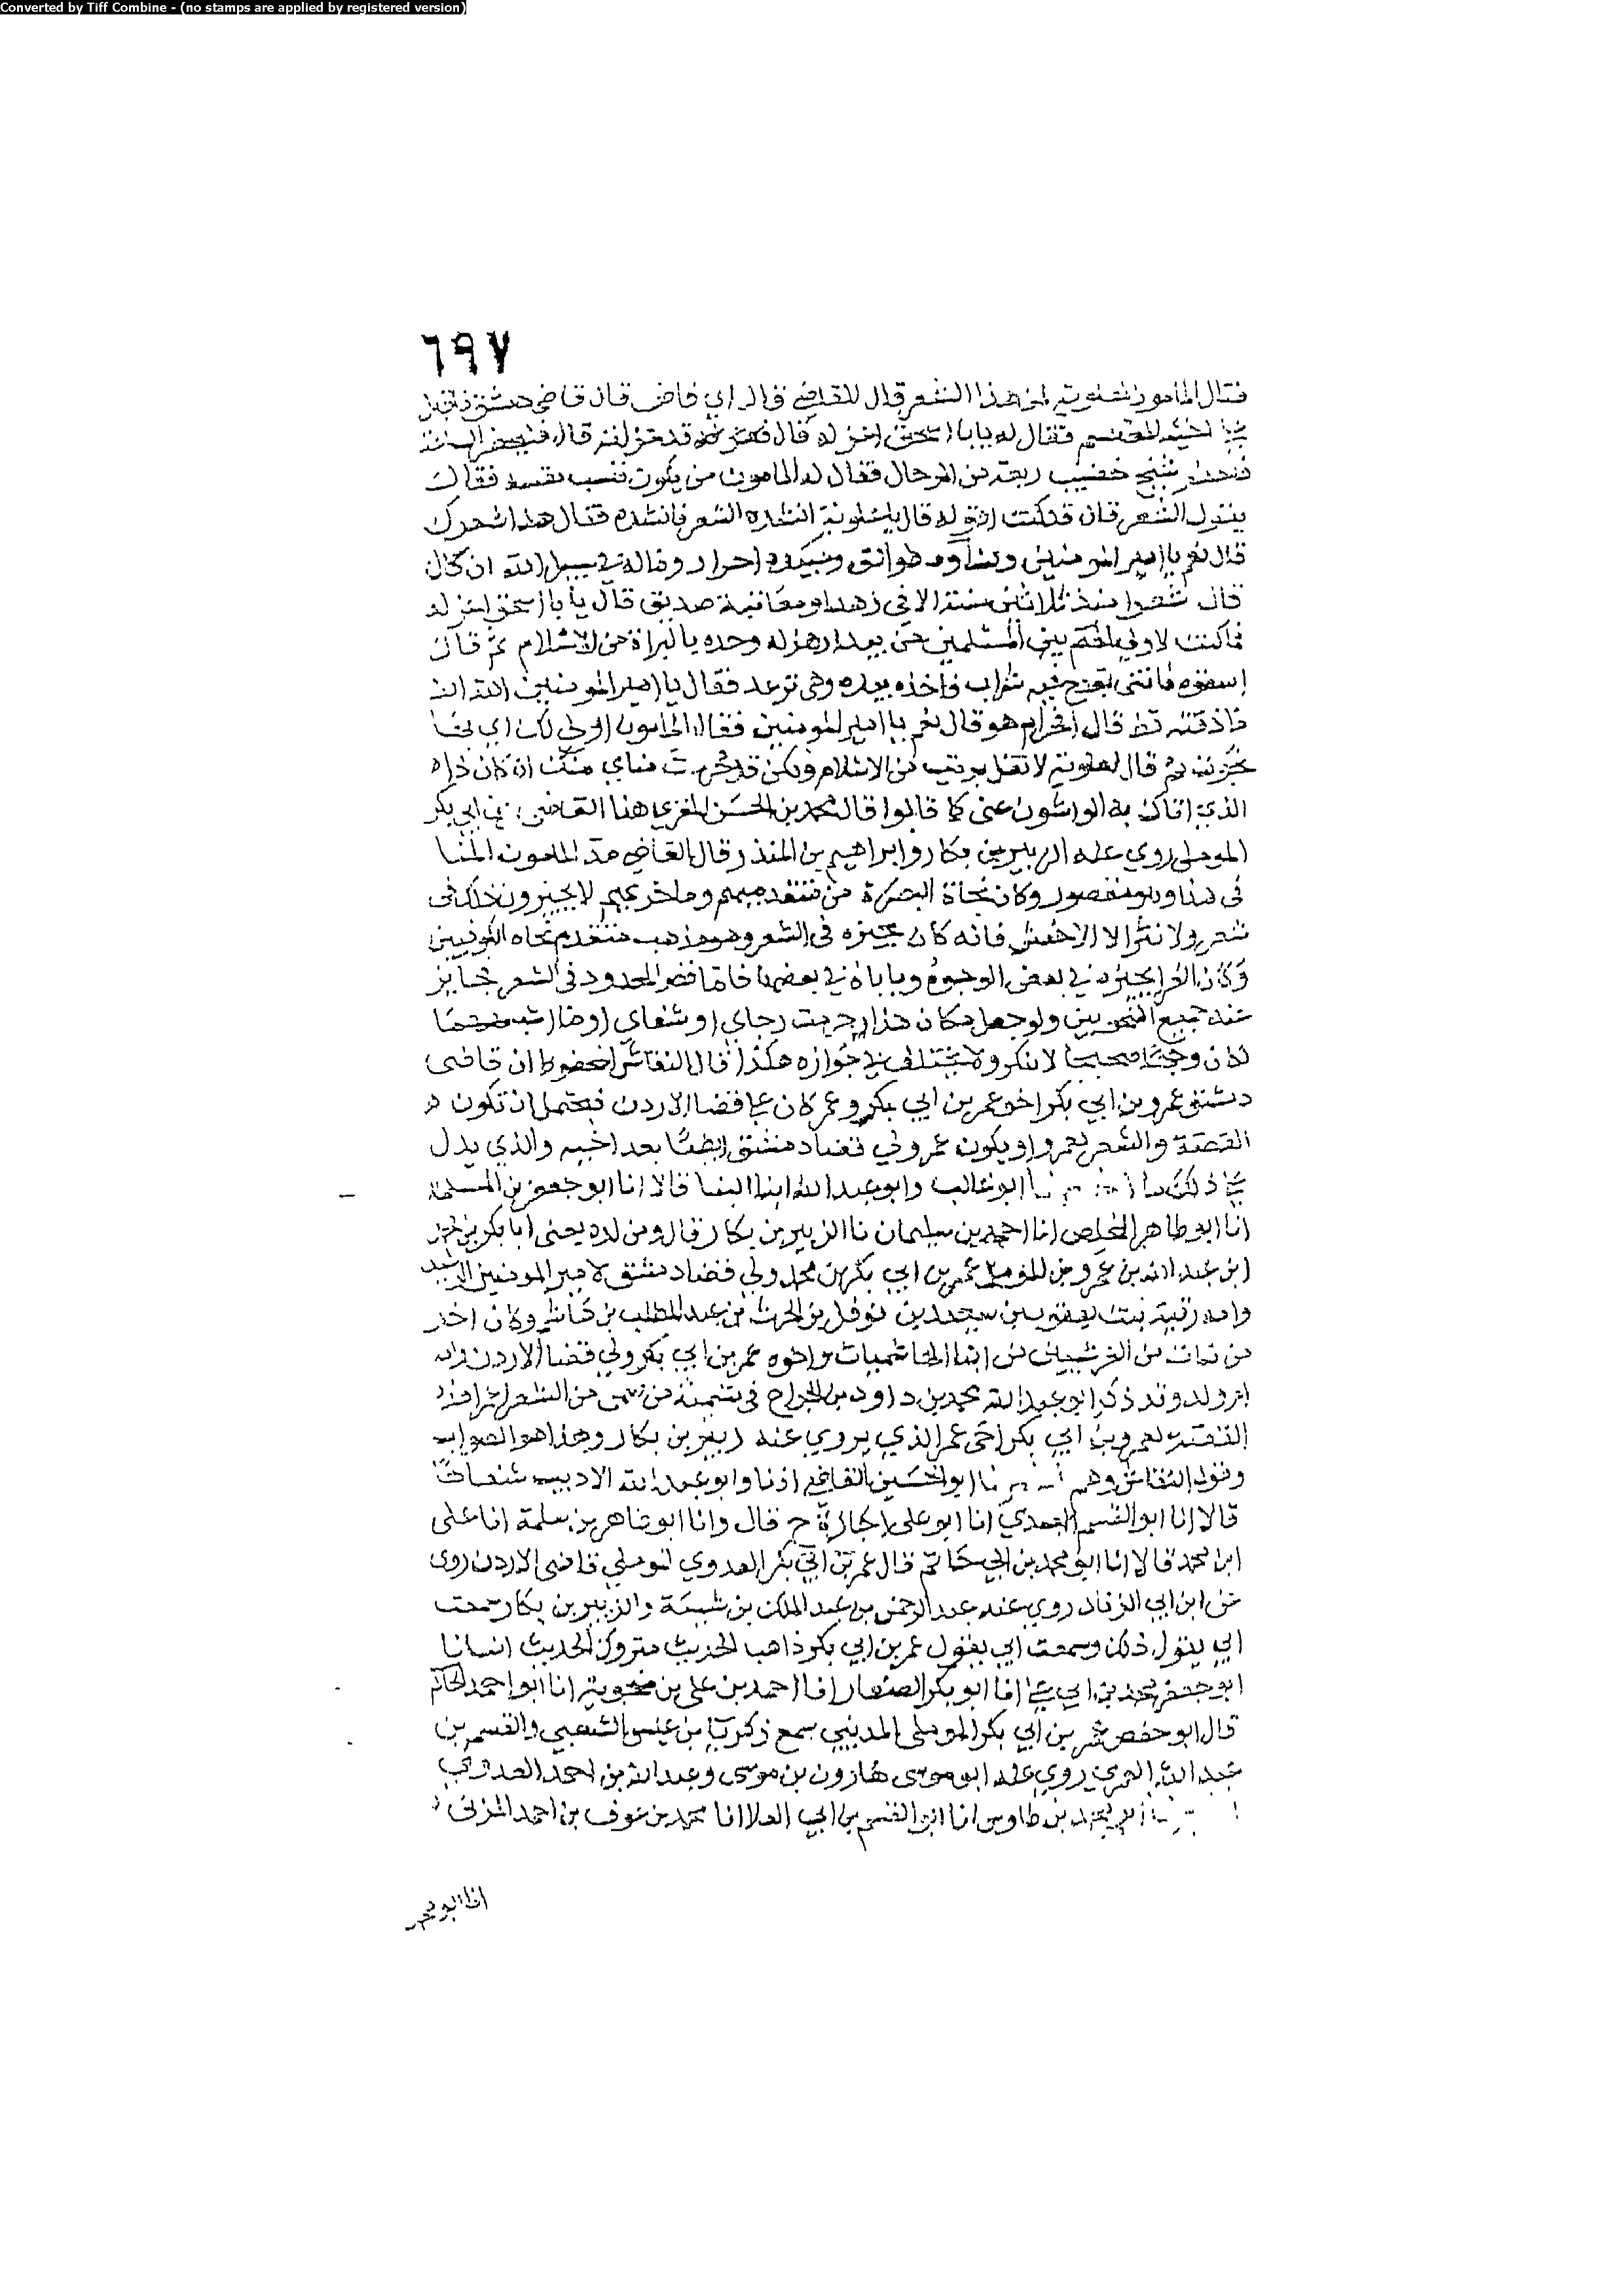 Converted by Tiff Combine - (no stamps are applied by registered version)
٦٩٧
فقال المامون لعلوية لمن هذا الشعر قال للقاضي قال اي قاض قال قاضي دمشق فاقبل
على اخيه المعتصم فقال له يابا اسحق اعزله قال قد عزلته قال فليحضر الساعة
فاحضر شيخ خضيب ربعة من الرجال فقال له المامون من تكون فنسب نفسه فقال
يقول الشعر قال قد كنت اقوله قال يا علوية انشده الشعر فانشده فقال هذا شعرك
قال نعم يا امير المومنين ونساوه طوالق وعبيده احرار وماله في سبيل الله ان كان
قال شعرا منذ ثلاثين سنة الا في زهد او معاتبة صديق قال يا با اسحق اعزله
فما كنت لاولي الحكم بين المسلمين من يبدا في هزله وحده بالبراة من الاسلام ثم قال
اسقوه فاتى بقدح فيه شراب فاخذه بيده وهي ترعد فقال يا امير المومنين الله الله
ما ذقته قط قال افحرام هو قال نعم يا امير المومنين فقال المامون اولى لك اي نجا
ثم قال لعلوية لا تقل برئت من الاسلام ولكن قل حرمت مناي منك ان كان ذا
الذي اتاك به الواشون عني كما قالوا قال محمد بن الحسن المقري هذا القاضي بن ابي بكر
الموصلي روى عنه الزبير بن بكار وابراهيم بن المنذر وقال القاضي مد المامون المنا
في هذا وهو مقصور وكان نحاة البصرة من متقدميهم ومتاخريهم لا يجيزون ذلك في
شعر ولا نثر الا الاخفش فانه كان يجيزه في الشعر وهو مذهب متقدم نحاة الكوفيين
وكان الفرا يجيزه في بعض الوجوه وياباه في بعضها فاما قصر الممدود في الشعر فجايز
عند جميع النحويين ولو جعل مكان هذا حرمت رجاي او شفاي
لكان وجها صحيحا لا ينكر ولا يختلف في جوازه هكذا قال النقاش المحفوظ ان قاضي
دمشق عمرو بن ابي بكر اخو عمر بن ابي بكر وعمر كان على قضا الاردن فيحتمل ان تكون
القصة والشعر لعمرو او يكون عمر ولي قضا دمشق ايضا بعد اخيه والذي يدل
على ذلك ما ابو غالب وابو عبد الله ابنا البنا قالا انا ابو جعفر بن المسلمة
انا ابو طاهر المخلص انا احمد بن سليمان نا الزبير بن بكار قال ومن ولده يعني ابا بكر بن
ابن عبد الله بن عمرو بن المومل عمرو بن ابي بكر بن محمد ولي قضا دمشق لامير المومنين الرشيد
وامه رقية بنت يعقوب بن سعيد بن نوفل بن الحرث بن عبد المطلب بن هاشم وكان اخر
من مات من القرشيين من ابنا الهاشميات واخوه عمر بن ابي بكر ولي قضا الاردن
وقد ذكر ابو عبد الله محمد بن داود بن الجراح في تسمية من سمي من الشعرا عمرا هذه
القصة لعمرو بن ابي بكر اخي عمر الذي يروي عنه زبير بن بكار وهذا هو الصواب
وقول النقاش وهم نا ابو الحسين القاضي اذنا وابو عبد الله الاديب شفاها
قالا انا ابو القسم العبدي انا ابو علي اجازة ح قال وانا ابو طاهر بن سلمة انا علي
ابن محمد قالا انا ابو محمد بن ابي حاتم قال عمر بن ابي بكر العدوي الموصلي قاضي الاردن روى
عن ابن ابي الزناد روى عنه عبد الرحمن بن عبد الملك بن شيبة والزبير بن بكار سمعت
ابي يقول ذلك وسمعت ابي يقول عمر بن ابي بكر ذاهب الحديث متروك الحديث انبانا
ابو جعفر محمد بن ابي علي انا ابو بكر الصفار انا احمد بن علي بن منجوية انا ابو احمد الحاكم
قال ابو حفص عمر بن ابي بكر الموصلي المديني سمع زكريا بن عيسى الشعبي والقسم بن
عبد الله العمري روى عنه ابو موسى هارون بن موسى وعبد الله بن احمد العدوي
بن طاوس انا ابو القسم بن ابي العلا انا محمد بن عوف بن احمد المزني
انا ابو محمد